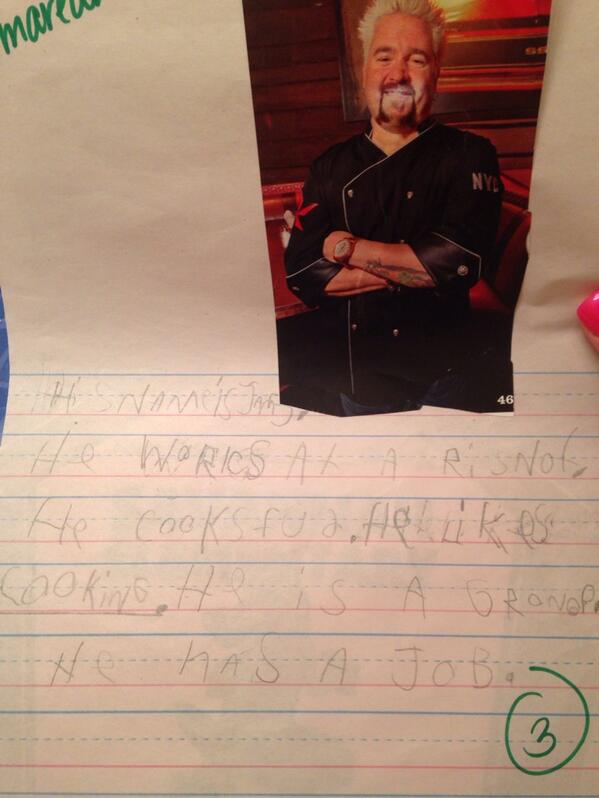 NYC
46
His NAMe is
He WORKS At A RisNot.
He cooks fud. He Likes
cooking. He is A GRANDP.
He hAS A JOB.
3